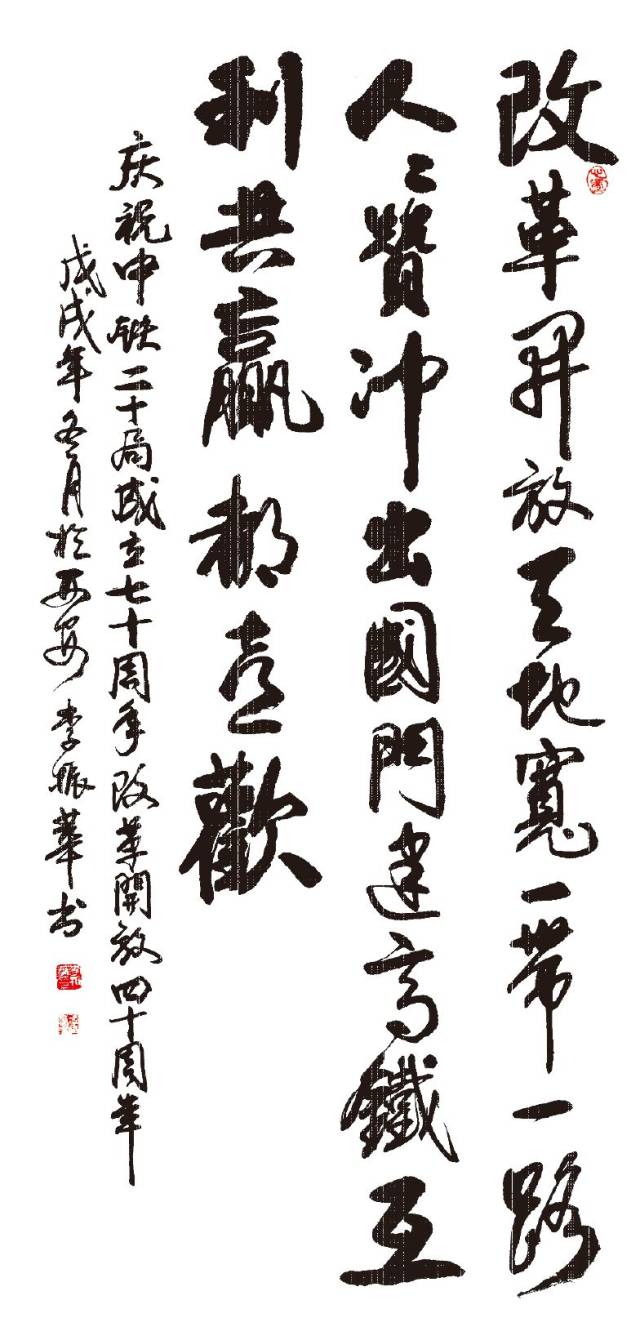 改革開放天地寬一带一路
人人贊冲出國門建高鐵互
利共赢都喜歡
庆祝中铁二十局成立七十周年改革開放四十周年
戊戌年冬月於西安 李振華书